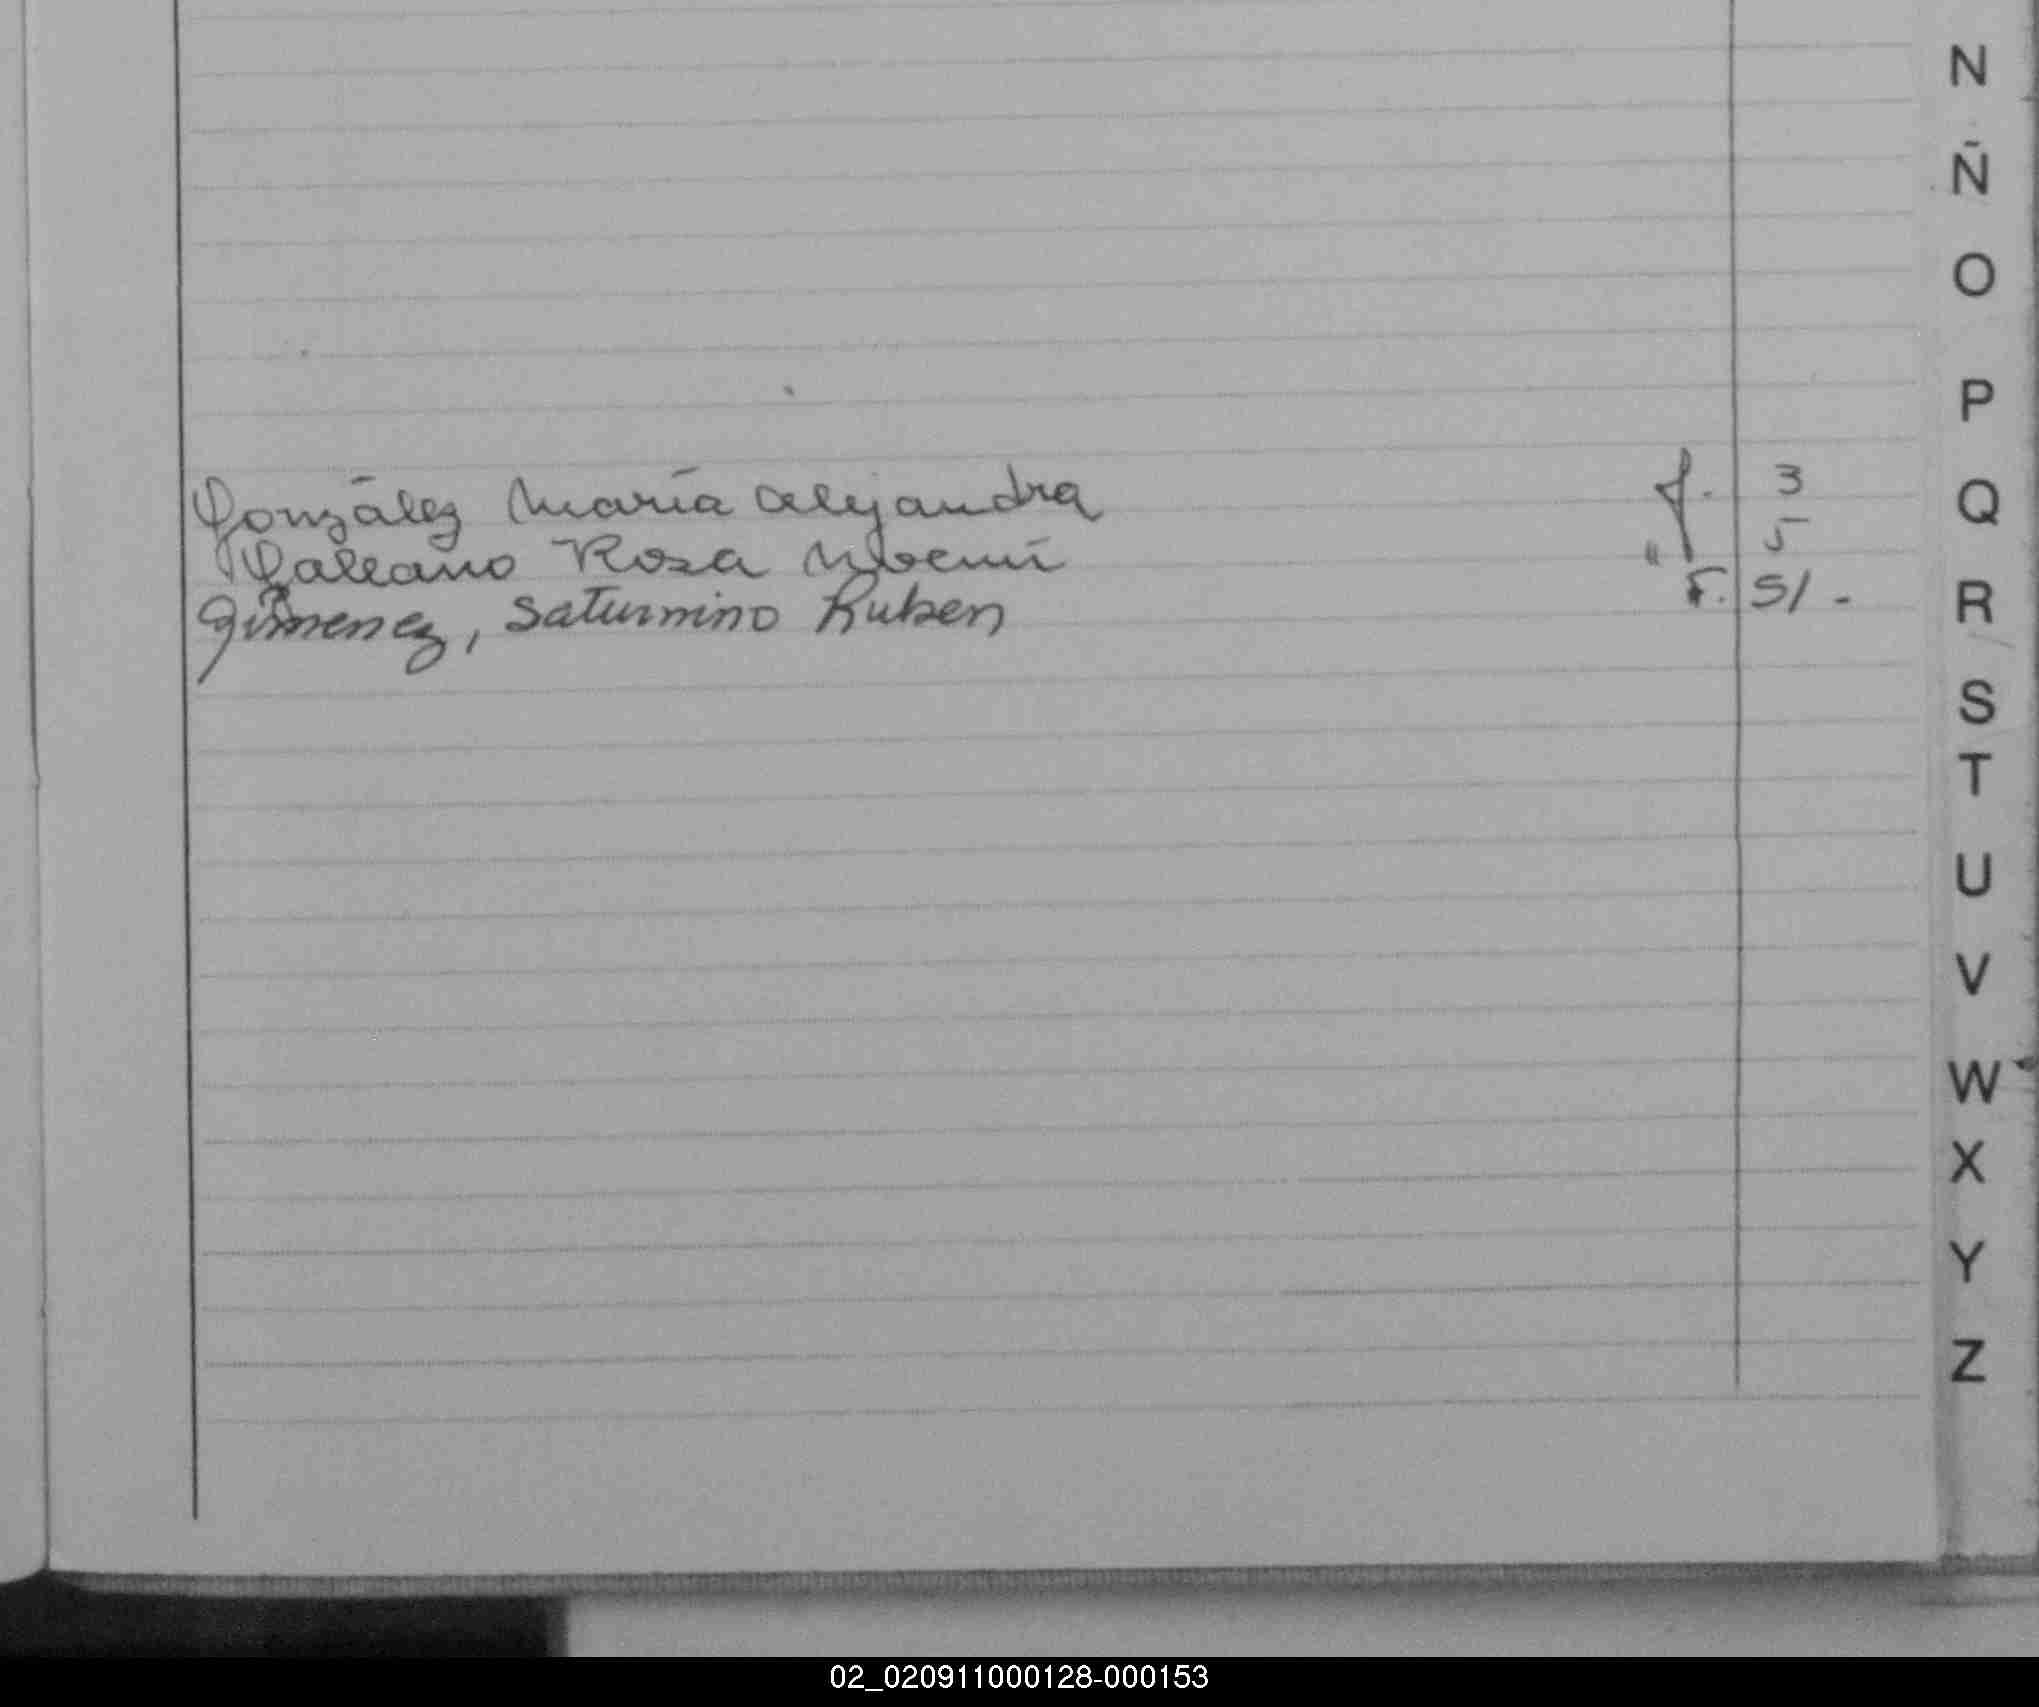 González María Alejandra f. 3
Galeano Rosa Noemí " 5
Gimenez, Saturnino Ruben F. 51 -
N
Ñ
O
P
Q
R
S
T
U
V
W
X
Y
Z
02_020911000128-000153